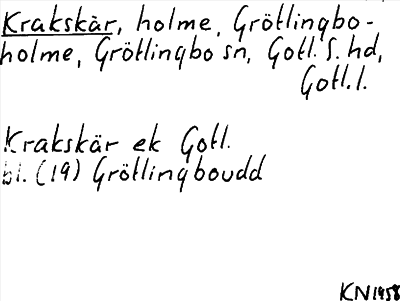 Krakskär, holme, Grötlingbo-
holme, Grötlingbo sn, Gotl. S. hd,
Gotl. l.
Krakskär ek Gotl.
bl. (19) Grötlingboudd
KN 1958